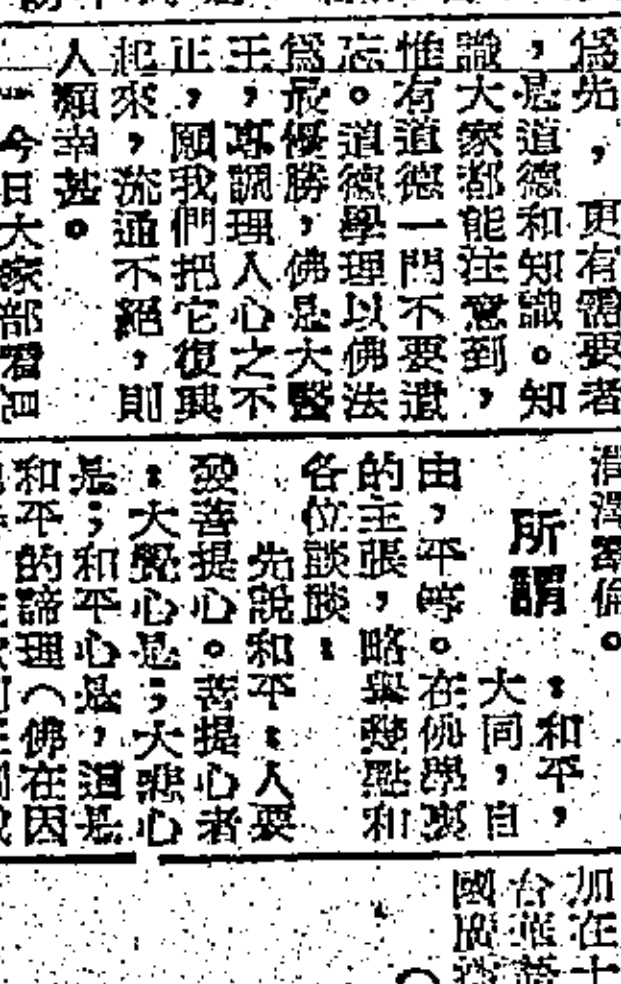 爲先，更有需要者
，是道德和知識。知
識大家都能注意到，
惟有道德一門不要遺
忘。道德學理以佛法
爲最優勝，佛是大醫
王，專調理人心之不
正，願我們把它復興
起來，流通不絕，則
人類幸甚。
今日大家部看
潤澤羣倫。
所謂
：和平，
大同，自
由，平等。在佛學裏
的主張，略舉幾點和
各位談談：
先說和平：人要
發菩提心。菩提心者
：大覺心是；大悲心
是；和平心是，道是
和平的諦理（佛在因
加在十
台灣
國